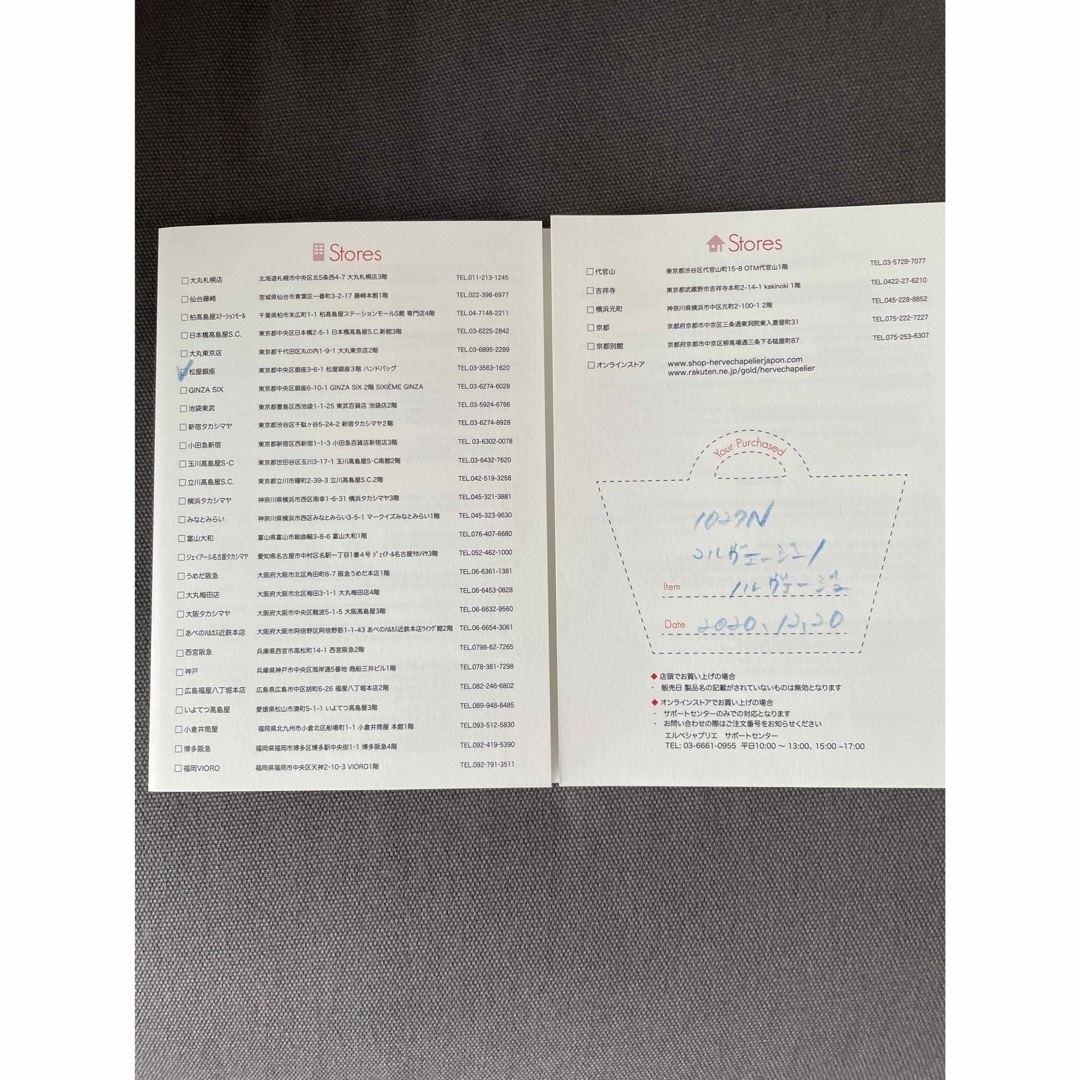 Stores
大丸札幌店 北海道札幌市中央区北5条西4-7 大丸札幌店3階 TEL.011-213-1245
仙台藤崎 宮城県仙台市青葉区一番町3-2-17 藤崎本館1階 TEL.022-398-6977
柏高島屋ステーションモール 千葉県柏市末広町1-1 柏高島屋ステーションモールS館 専門店4階 TEL.04-7148-2211
日本橋高島屋S.C. 東京都中央区日本橋2-5-1 日本橋高島屋S.C.新館3階 TEL.03-6225-2842
大丸東京店 東京都千代田区丸の内1-9-1 大丸東京店2階 TEL.03-6895-2289
松屋銀座 東京都中央区銀座3-6-1 松屋銀座3階 ハンドバッグ TEL.03-3563-1620
GINZA SIX 東京都中央区銀座6-10-1 GINZA SIX 2階 SIXIÈME GINZA TEL.03-6274-6028
池袋東武 東京都豊島区西池袋1-1-25 東武百貨店 池袋店2階 TEL.03-5924-6766
新宿タカシマヤ 東京都渋谷区千駄ヶ谷5-24-2 新宿タカシマヤ2階 TEL.03-6274-8928
小田急新宿 東京都新宿区西新宿1-1-3 小田急百貨店新宿店3階 TEL. 03-6302-0078
玉川高島屋S・C 東京都世田谷区玉川3-17-1 玉川高島屋S・C南館2階 TEL.03-6432-7620
立川高島屋S.C. 東京都立川市曙町2-39-3 立川高島屋S.C.2階 TEL.042-519-3258
横浜タカシマヤ 神奈川県横浜市西区南幸1-6-31 横浜タカシマヤ3階 TEL.045-321-3881
みなとみらい 神奈川県横浜市西区みなとみらい3-5-1 マークイズみなとみらい1階 TEL.045-323-9630
富山大和 富山県富山市総曲輪3-8-6 富山大和1階 TEL.076-407-6680
ジェイアール名古屋タカシマヤ 愛知県名古屋市中村区名駅一丁目1番4号 ジェイアール名古屋タカシマヤ3階 TEL.052-462-1000
うめだ阪急 大阪府大阪市北区角田町8-7 阪急うめだ本店1階 TEL.06-6361-1381
大丸梅田店 大阪府大阪市北区梅田3-1-1 大丸梅田店4階 TEL.06-6453-0828
大阪タカシマヤ 大阪府大阪市中央区難波5-1-5 大阪高島屋3階 TEL.06-6632-9560
あべのハルカス近鉄本店 大阪府大阪市阿倍野区阿倍野筋1-1-43 あべのハルカス近鉄本店ウイング館2階 TEL.06-6654-3061
西宮阪急 兵庫県西宮市高松町14-1 西宮阪急2階 TEL.0798-62-7265
神戸 兵庫県神戸市中央区海岸通5番地 商船三井ビル1階 TEL.078-381-7298
広島福屋八丁堀本店 広島県広島市中区胡町6-26 福屋八丁堀本店2階 TEL.082-246-6802
いよてつ高島屋 愛媛県松山市湊町5-1-1 いよてつ高島屋3階 TEL.089-948-8485
小倉井筒屋 福岡県北九州市小倉北区船場町1-1 小倉井筒屋 本館1階 TEL.093-512-5830
博多阪急 福岡県福岡市博多区博多駅中央街1-1 博多阪急4階 TEL.092-419-5390
福岡VIORO 福岡県福岡市中央区天神2-10-3 VIORO1階 TEL.092-791-3511
Stores
代官山 東京都渋谷区代官山町15-8 OTM代官山1階 TEL.03-5728-7077
吉祥寺 東京都武蔵野市吉祥寺本町2-14-1 kakinoki 1階 TEL.0422-27-6210
横浜元町 神奈川県横浜市中区元町2-100-1 2階 TEL.045-228-8852
京都 京都府京都市中京区三条通東洞院東入菱屋町31 TEL.075-222-7227
京都別館 京都府京都市中京区柳馬場通三条下る槌屋町87 TEL.075-253-6307
オンラインストア www.shop-hervechapelierjapon.com
www.rakuten.ne.jp/gold/hervechapelier
Your Purchased
1027N
ノルヴェージュ/
Item ノルヴェージュ
Date 2020.12.20
◆ 店頭でお買い上げの場合
・ 販売日 製品名の記載がされていないものは無効となります
◆ オンラインストアでお買い上げの場合
・ サポートセンターのみでの対応となります
・ お問い合わせの際はご注文番号をお知らせください
エルベシャプリエ サポートセンター
TEL: 03-6661-0955 平日10:00 〜 13:00、15:00 ~17:00